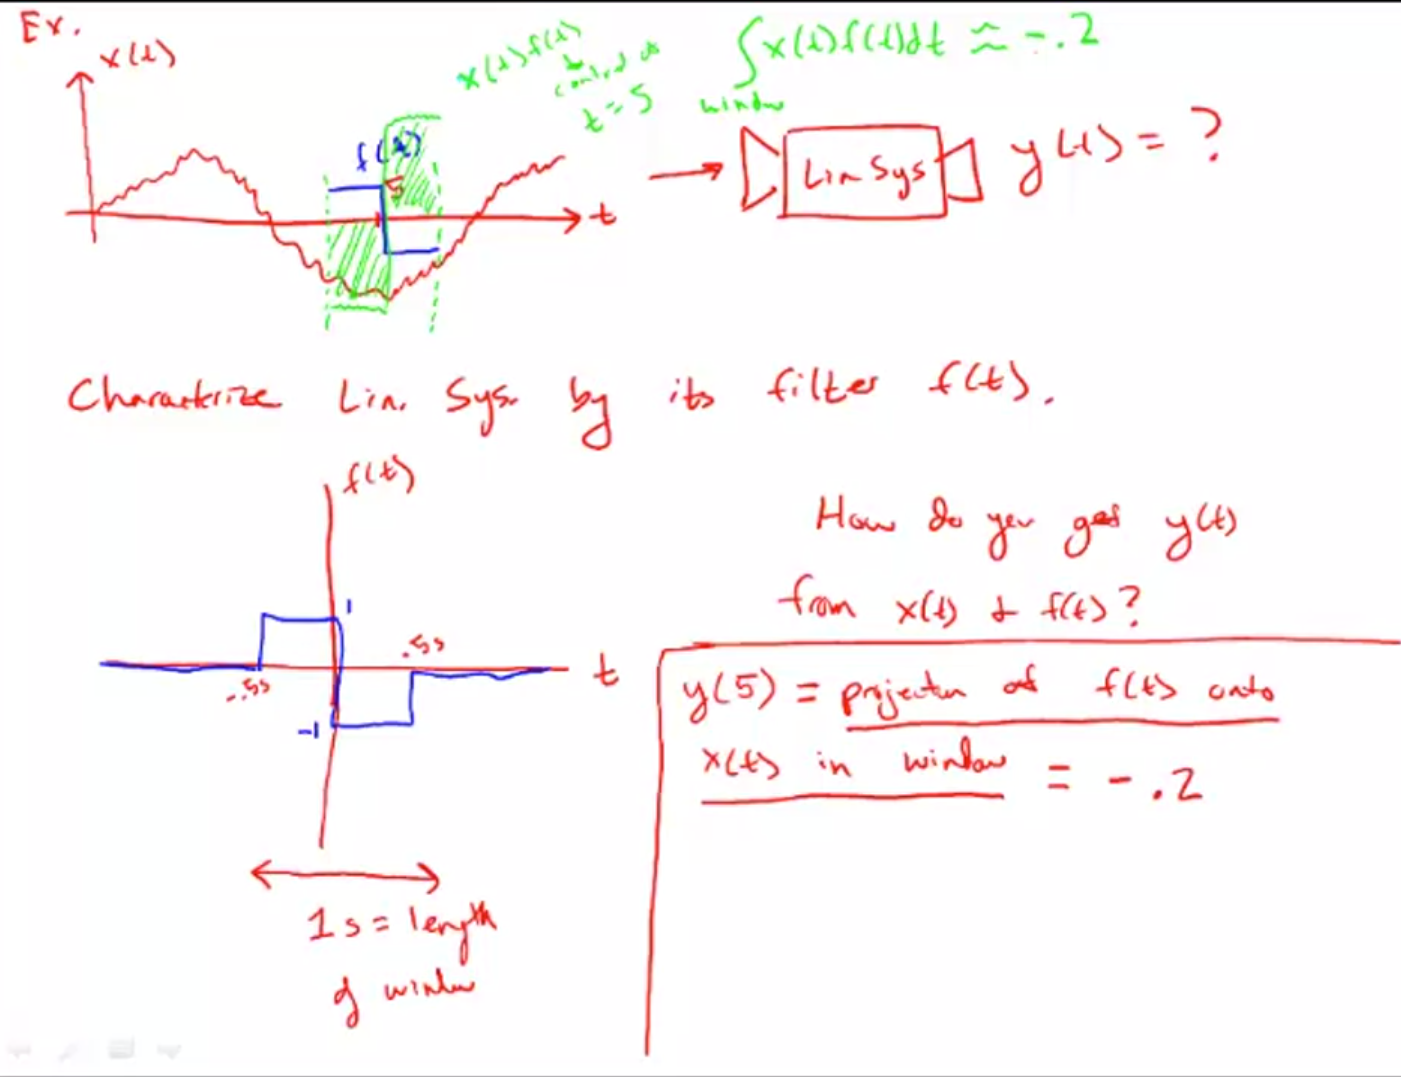 Ex.
x(t)
x(t)f(t)
centered at
t=5
∫x(t)f(t)dt ≈ -.2
window
f(t)
5
t
Lin Sys
y(t) = ?
Characterize Lin. Sys. by its filter f(t).
f(t)
1
.5s
-.5s
t
-1
1s = length
of window
How do you get y(t)
from x(t) & f(t)?
y(5) = projection of f(t) onto
x(t) in window = -.2